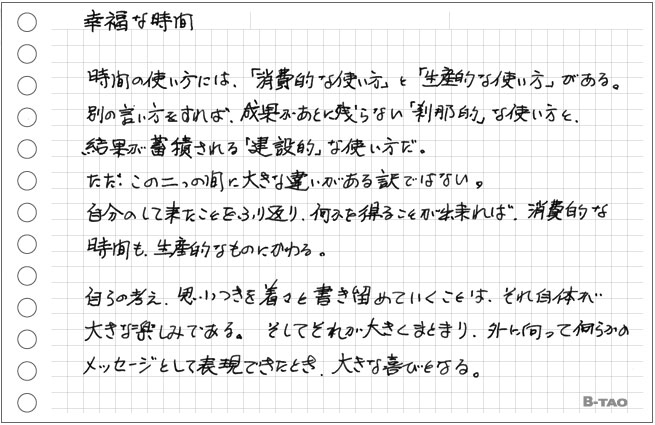 幸福な時間
時間の使い方には、「消費的な使い方」と「生産的な使い方」がある。
別の言い方をすれば、成果があとに残らない「刹那的」な使い方と、
結果が蓄積される「建設的」な使い方だ。
ただ、この二つの間に大きな違いがある訳ではない。
自分のして来たことをふり返り、何かを得ることが出来れば、消費的な
時間も、生産的なものにかわる。
自らの考え、思いつきを着々と書き留めていくことは、それ自体が
大きな楽しみである。 そしてそれが大きくまとまり、外に向って何らかの
メッセージとして表現できたとき、大きな喜びとなる。
B-TAO